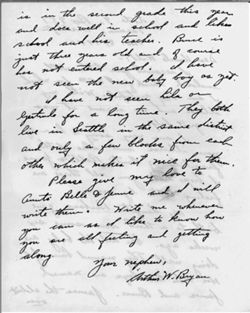 is in the second grade this year
and does well in school and likes
school and his teacher. Bruce is
just three years old and of course
has not entered school. I have
not seen the new baby boy as yet.
I have not seen Lila or
for a long time. They both
live in Seattle in the same district
and only a few blocks from each
other which makes it nice for them.
Please give my love to
Aunts Belle & Jennie and I will
write them. Write me whenever
you can as I like to know how
you are all feeling and getting
along.
Your nephew,
Arthur W. Bryan